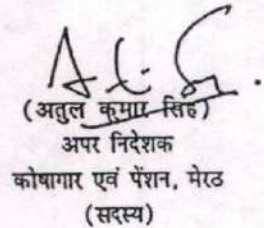 (अतुल कुमार सिंह)
अपर निदेशक
कोषागार एवं पेंशन, मेरठ
(सदस्य)